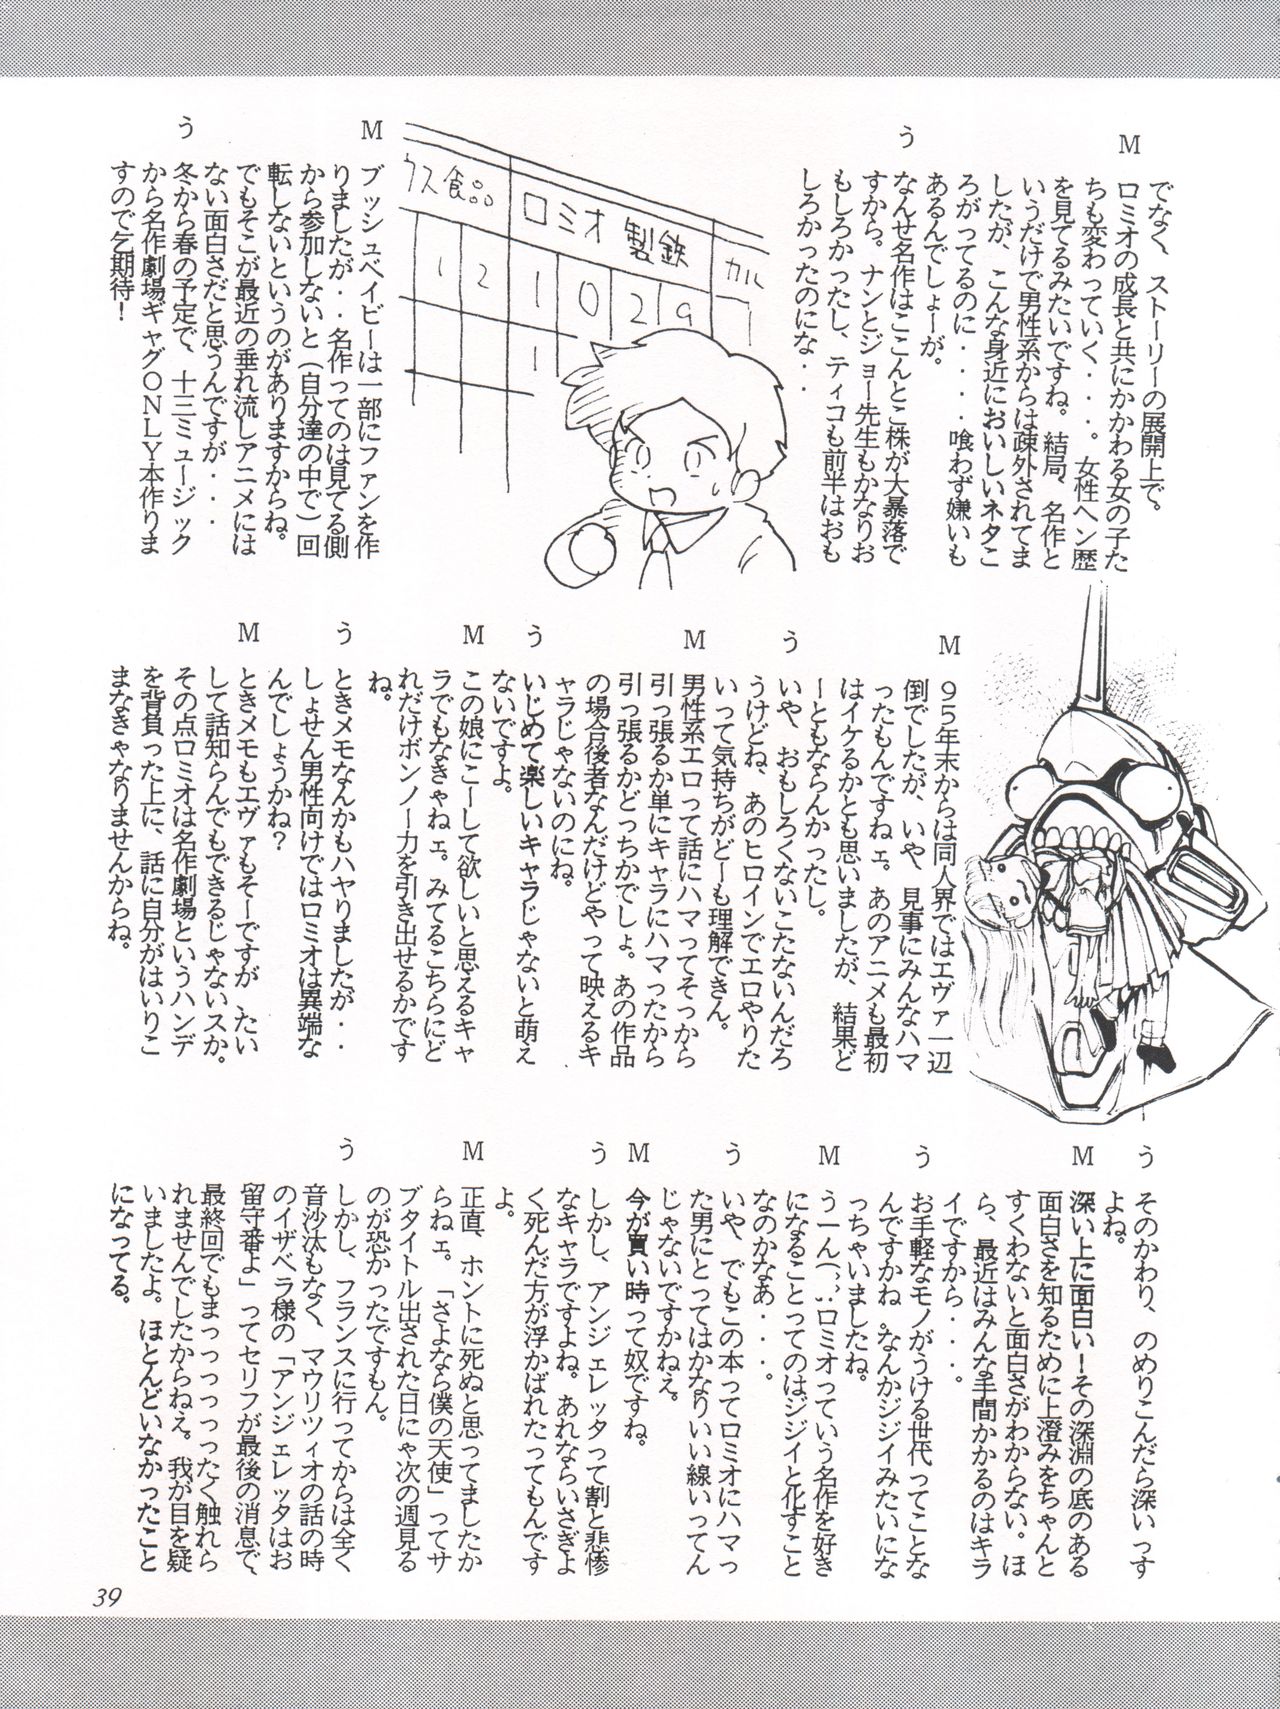 でなく、ストーリーの展開上で。
M
ロミオの成長と共にかかわる女の子た
ちも変わっていく・・・。女性ヘン歴
を見てるみたいですね。結局、名作と
いうだけで男性系からは疎外されてま
したが、こんな身近においしいネタこ
ろがってるのに・・・・喰わず嫌いも
あるんでしょーが。
う
なんせ名作はここんとこ株が大暴落で
すから。ナンとジョー先生もかなりお
もしろかったし、ティコも前半はおも
しろかったのにな・・
ウス食品
ロミオ製鉄
カル
12
1029
1
M
ブッシュベイビーは一部にファンを作
りましたが・・名作ってのは見てる側
から参加しないと(自分達の中で)回
転しないというのがありますからね。
でもそこが最近の垂れ流しアニメには
ない面白さだと思うんですが・・・
う
冬から春の予定で、十三ミュージック
から名作劇場ギャグONLY本作りま
すので乞期待!
M
95年末からは同人界ではエヴァ一辺
倒でしたが、いや、見事にみんなハマ
ったもんですねェ。あのアニメも最初
はイケるかとも思いましたが、結果ど
ーともならんかったし。
う
いや、おもしろくないこたないんだろ
うけどね、あのヒロインでエロやりた
いって気持ちがどーも理解できん。
M
男性系エロって話にハマってそっから
引っ張るか単にキャラにハマったから
引っ張るかどっちかでしょ。あの作品
の場合後者なんだけどやって映えるキ
ャラじゃないのにね。
う
いじめて楽しいキャラじゃないと萌え
ないですよ。
M
この娘にこーして欲しいと思えるキャ
ラでもなきゃねェ。みてるこちらにど
れだけボンノー力を引き出せるかです
ね。
う
ときメモなんかもハヤりましたが・・
しょせん男性向けではロミオは異端な
んでしょうかね?
M
ときメモもエヴァもそーですが、たい
して話知らんでもできるじゃないスか。
その点ロミオは名作劇場というハンデ
を背負った上に、話に自分がはいりこ
まなきゃなりませんからね。
う
そのかわり、のめりこんだら深いっす
よね。
M
深い上に面白い!その深淵の底のある
面白さを知るために上澄みをちゃんと
すくわないと面白さがわからない。ほ
ら、最近はみんな手間かかるのはキラ
イですから・・・。
う
お手軽なモノがうける世代ってことな
んですかね。なんかジジイみたいにな
っちゃいましたね。
M
うーん(;;ロミオっていう名作を好き
になることってのはジジイと化すこと
なのかなあ・・・。
う
いや、でもこの本ってロミオにハマっ
た男にとってはかなりいい線いってん
じゃないですかねぇ。
M
今が買い時って奴ですね。
う
しかし、アンジェレッタって割と悲惨
なキャラですよね。あれならいさぎよ
く死んだ方が浮かばれたってもんです
よ。
M
正直、ホントに死ぬと思ってましたか
らねェ。「さよなら僕の天使」ってサ
ブタイトル出された日にゃ次の週見る
のが恐かったですもん。
う
しかし、フランスに行ってからは全く
音沙汰もなく、マウリツィオの話の時
のイザベラ様の「アンジェレッタはお
留守番よ」ってセリフが最後の消息で、
最終回でもまっっっっったく触れら
れませんでしたからねえ。我が目を疑
いましたよ。ほとんどいなかったこと
になってる。
39